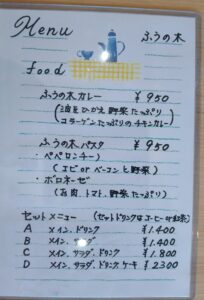 Menu
ふうの木
food
ふうの木カレー ¥950
(油をひかえ野菜たっぷり
コラーゲンたっぷりのチキンカレー)
ふうの木パスタ ¥950
・ペペロンチーノ
(エビ or ベーコンと野菜)
・ボロネーゼ
(お肉、トマト、野菜たっぷり)
セットメニュー (セットドリンクはコーヒーor紅茶)
A メイン、ドリンク ¥1.400
B メイン、サラダ ¥1.400
C メイン、サラダ、ドリンク ¥1.800
D メイン、サラダ、ドリンク、ケーキ ¥2300